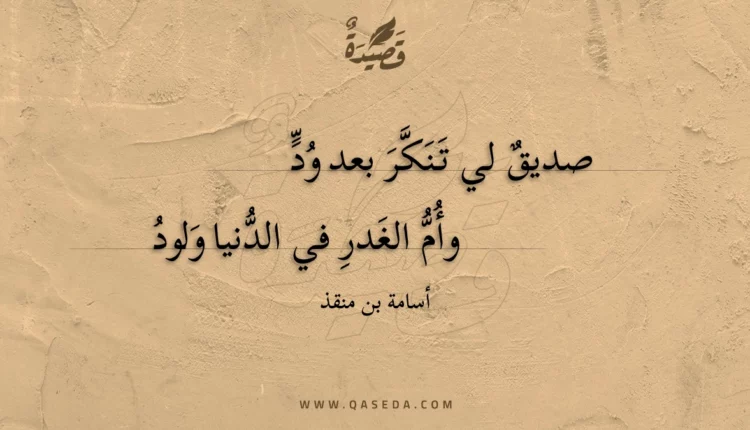 قَصِيْدَةٌ
صديقٌ لي تَنَكَّرَ بعد وُدٍّ
وأُمُّ الغَدرِ في الدُّنيا وَلودُ
أسامة بن منقذ
WWW.QASEDA.COM